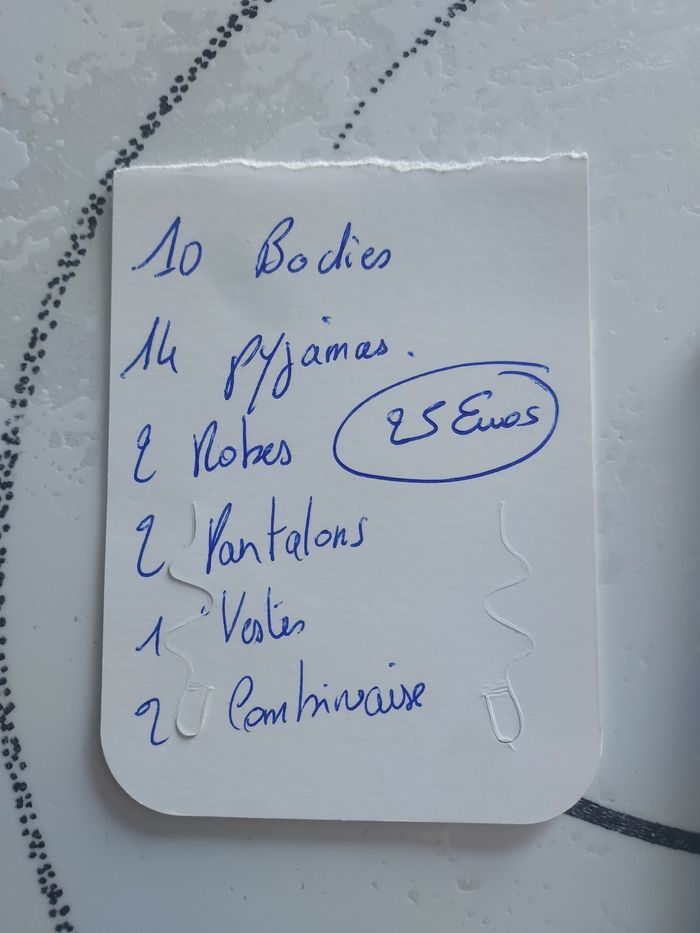 10 Bodies
14 pyjamas.
2 Robes
25 Euros
2 Pantalons
1 Vestes
2 Combinaise